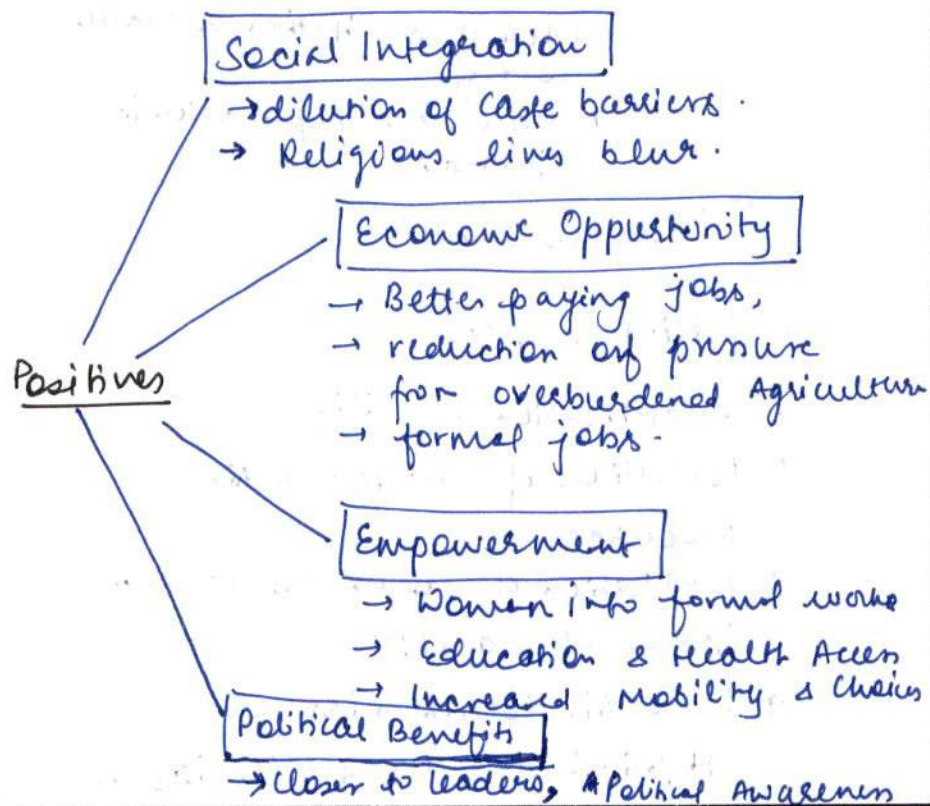 Social Integration
→ dilution of Caste barriers.
→ Religious lines blur.
Economic Oppurtunity
→ Better paying jobs,
→ reduction of pressure
Positives
from overburdened Agriculture
→ formal jobs.
Empowerment
→ Women into formal works
→ Education & Health Access
→ Increased Mobility & Choices
Political Benefits
→ Closer to leaders, Political Awareness